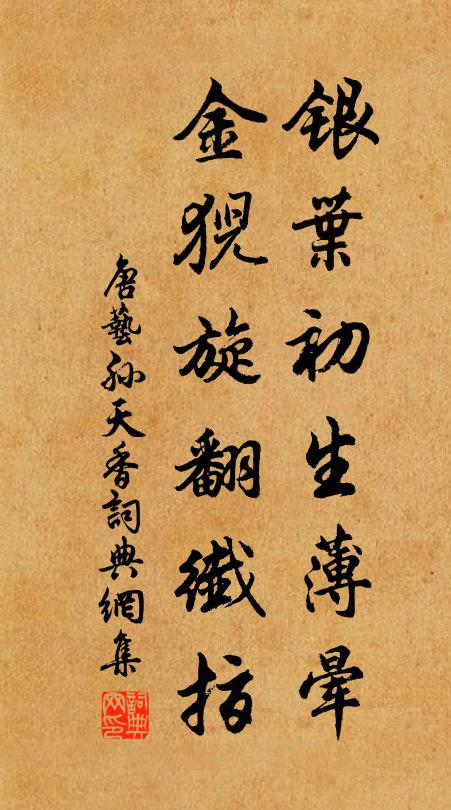 銀葉初生薄暈
金猊旋翻纖指
唐藝孫天香詞典網集
詞典網印